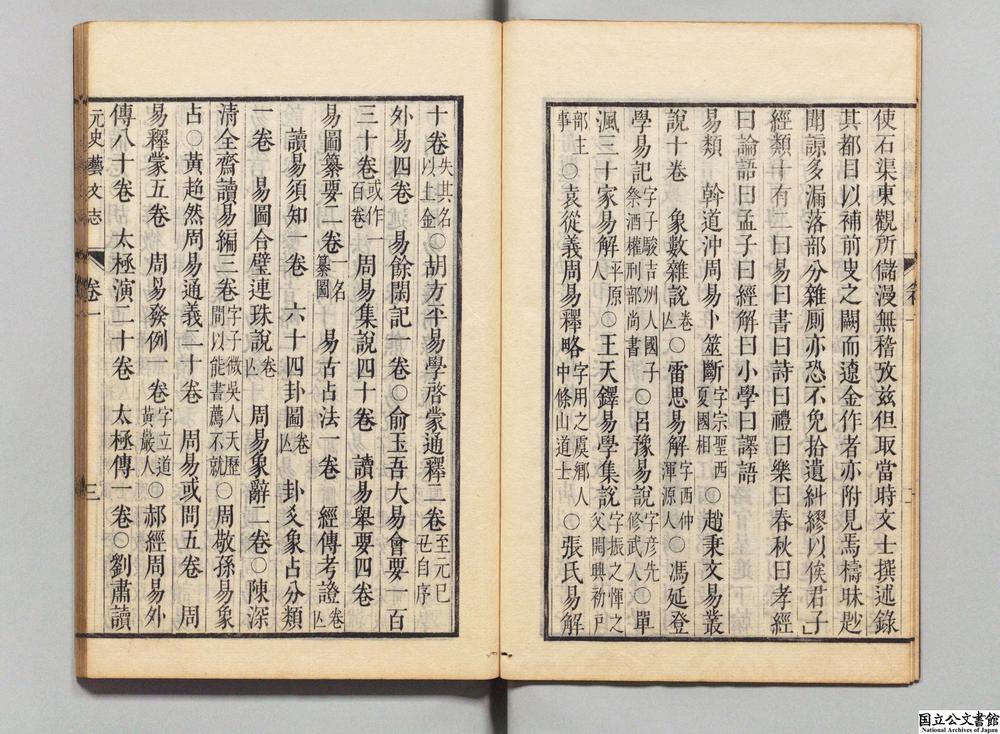 使石渠東觀所儲漫無稽攷兹但取當時文士撰述錄
其都目以補前史之闕而遼金作者亦附見焉檮昧尟
聞諒多漏落部分雜厠亦恐不免拾遺糾繆以俟君子
經類十有二曰易曰書曰詩曰禮曰樂曰春秋曰孝經
曰論語曰孟子曰經解曰小學曰譯語
易類 斡道沖周易卜筮斷字宗聖西夏國相○趙秉文易叢
說十卷 象數雜說卷亾○雷思易解字西仲渾源人○馮延登
學易記字子駿吉州人國子祭酒權刑部尚書○呂豫易說字彦先修武人○單
渢三十家易解平原人○王天鐸易學集說字振之惲之父開興初戸
部主事○袁從義周易釋略字用之虞鄉人中條山道士○張氏易解
十卷失其名以上金○胡方平易學啓蒙通釋二卷至元己丑自序
外易四卷 易餘閑記一卷○俞玉吾大易會要一百
三十卷或作一百卷 周易集說四十卷 讀易舉要四卷
易圖纂要二卷一名纂圖 易古占法一卷 經傳考證卷亾
讀易須知一卷 六十四卦圖卷亾 卦爻象占分類
一卷 易圖合璧連珠說卷亾 周易象辭二卷○陳深
清全齋讀易編三卷字子微吳人天歷間以能書薦不就○周敬孫易象
占○黃超然周易通義二十卷 周易或問五卷 周
易釋蒙五卷 周易發例一卷字立道黃巖人○郝經周易外
傳八十卷 太極演二十卷 太極傳一卷○劉肅讀
元史藝文志 卷一 三
国立公文書館
National Archives of Japan